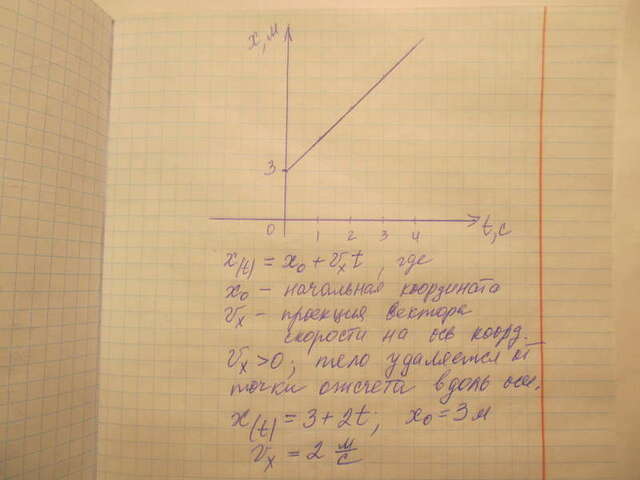 x, м
3
0 1 2 3 4 t, с
x(t) = x₀ + vₓt, где
x₀ – начальная координата
vₓ – проекция вектора
скорости на ось коорд.
vₓ > 0; тело удаляется от
точки отсчета вдоль оси.
x(t) = 3 + 2t; x₀ = 3 м
vₓ = 2 м/с